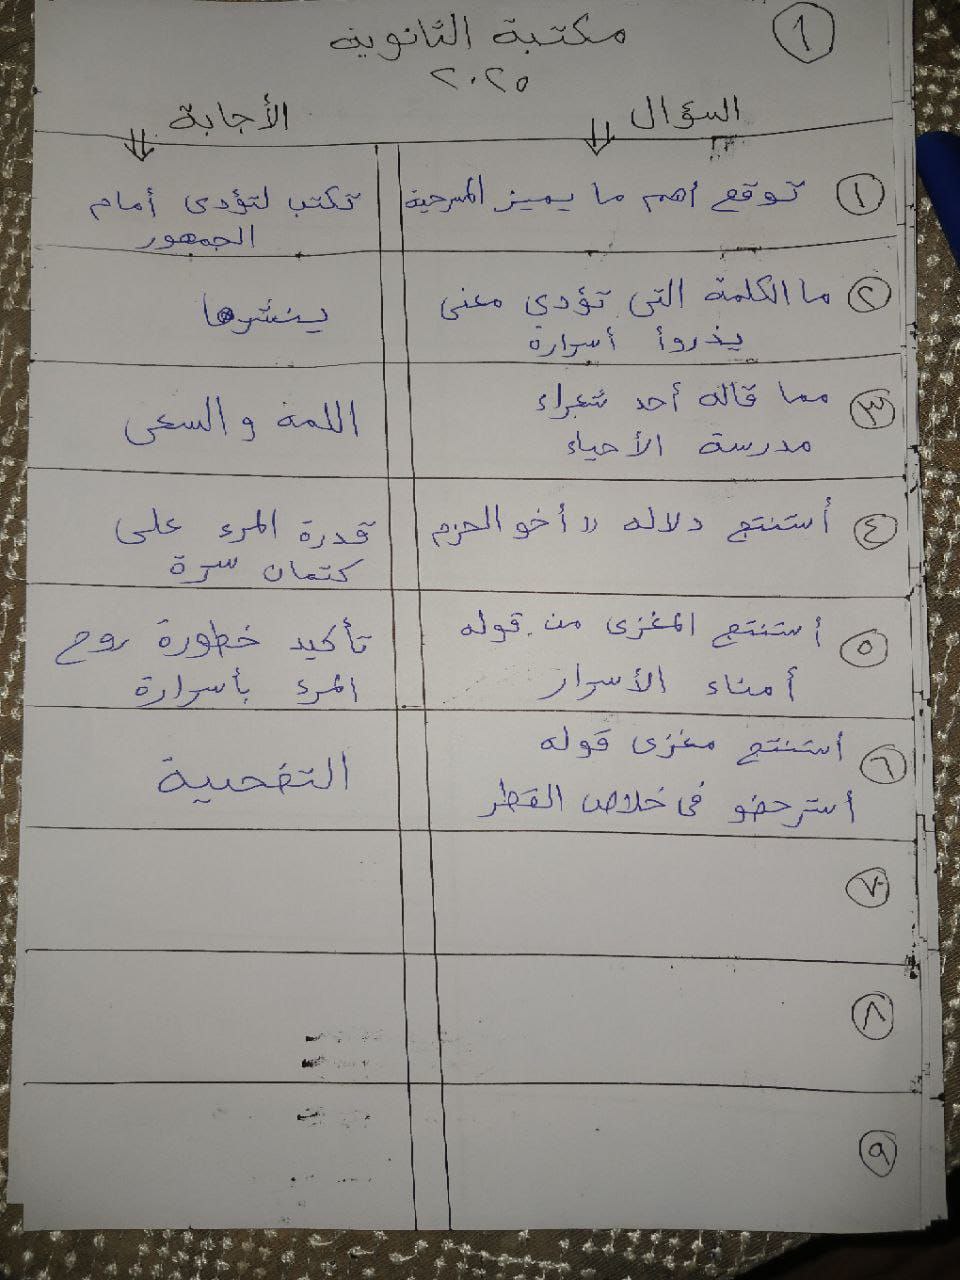 ١
مكتبة الثانوية
٢٠٢٥
السؤال
الأجابة
١ توقع أهم ما يميز المسرحية
تكتب لتؤدى أمام
الجمهور
٢ ما الكلمة التى تؤدي معنى
يذروأ أسرارة
ينشرها
٣ مما قاله أحد شعراء
مدرسة الأحياء
اللمه والسعى
٤ أستنتج دلاله " أخو الحزم
قدرة المرء على
كتمان سرة
٥ أستنتج المغزى من قوله
أمناء الأسرار
تأكيد خطورة روح
المرء بأسرارة
٦ أستنتج مغزى قوله
أسترحضو فى خلاص القطر
التضحية
٧
٨
٩